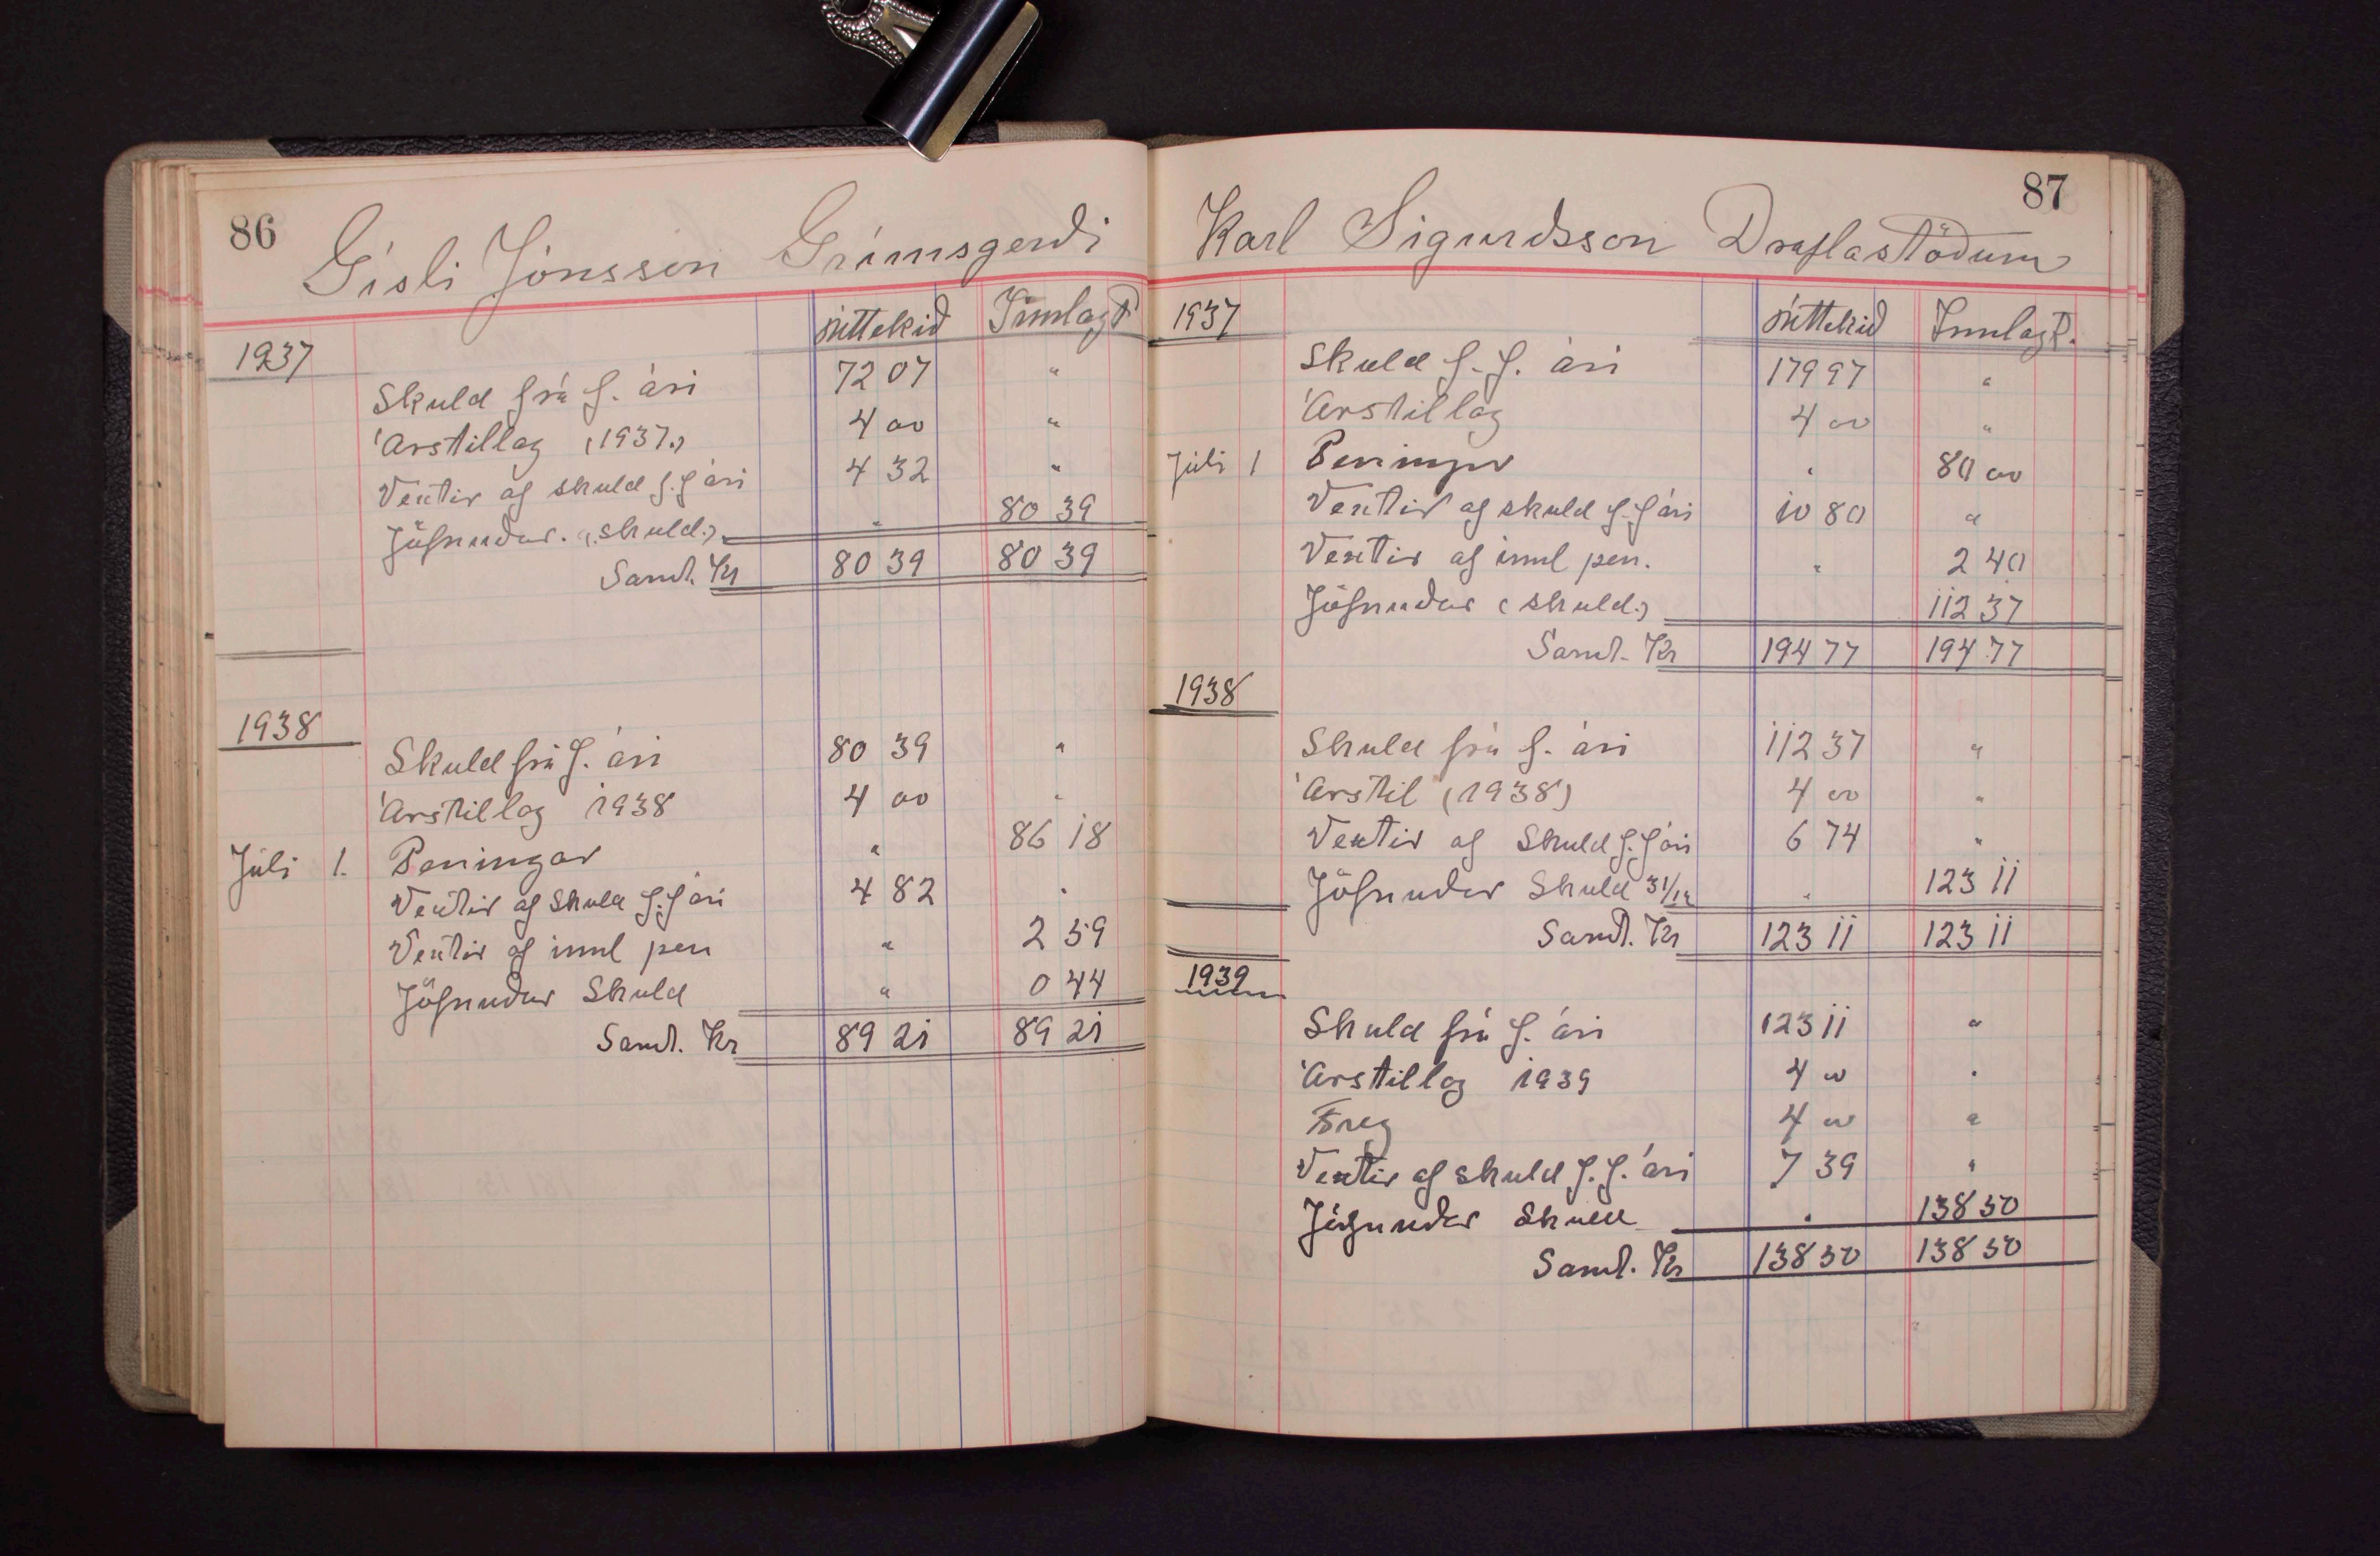 86
Gísli Jónsson Grímsgerdi
úttekið Innlagt
1937
Skuld frá f. ári 72 07 "
Árstillag (1937.) 4 00 "
Vextir af skuld f. f ári 4 32 "
Jöfnuður. (skuld.) " 80 39
Samt. Kr 80 39 80 39
1938
Skuld frá f. ári 80 39 "
Árstillag 1938 4 00 "
Júlí 1. Peningar " 86 18
Vextir af skuld f. f ári 4 82 "
Vextir af innl pen " 2 59
Jöfnuður Skuld " 0 44
Samt. Kr 89 21 89 21
87
Karl Sigurdsson Draflastödum
1937 úttekið Innlagt.
Skuld f. f. ári 179 97 "
Árstillag 4 00 "
Júlí 1 Peningar " 80 00
Vextir af skuld f. f ári 10 80 "
Vextir af innl pen. " 2 40
Jöfnuður (skuld.) 112 37
Samt. Kr 194 77 194 77
1938
Skuld frá f. ári 112 37 "
Árstil (1938) 4 00 "
Vextir af Skuld f. f ári 6 74 "
Jöfnuður Skuld 31/12 " 123 11
Samt. Kr 123 11 123 11
1939
Skuld frá f. ári 123 11 "
Árstillag 1939 4 00 "
4 00 "
Vextir af skuld f. f. ári 7 39 "
Jöfnuður Skuld " 138 50
Samt. Kr 138 50 138 50